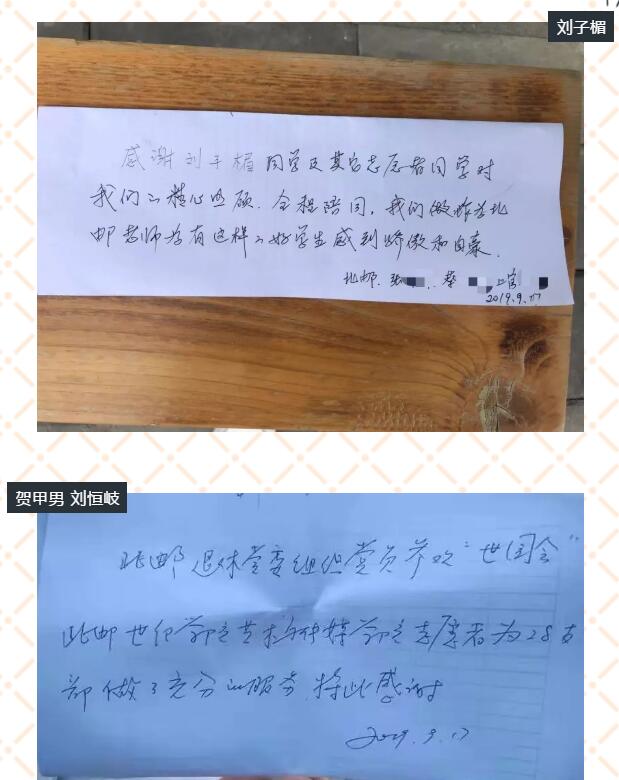 刘子媚
感谢刘子媚同学及其它志愿者同学对
我们的精心照顾.全程陪同,我们做为北
邮老师为有这样的好学生感到骄傲和自豪.
北邮.张 蔡 上官
2019.9.17
贺甲男 刘恒岐
北邮退休党委组织党员参观"世园会"
北邮世纪学院艺术与传媒学院志愿者为28支
部做了充分的服务,特此感谢
2019.9.17